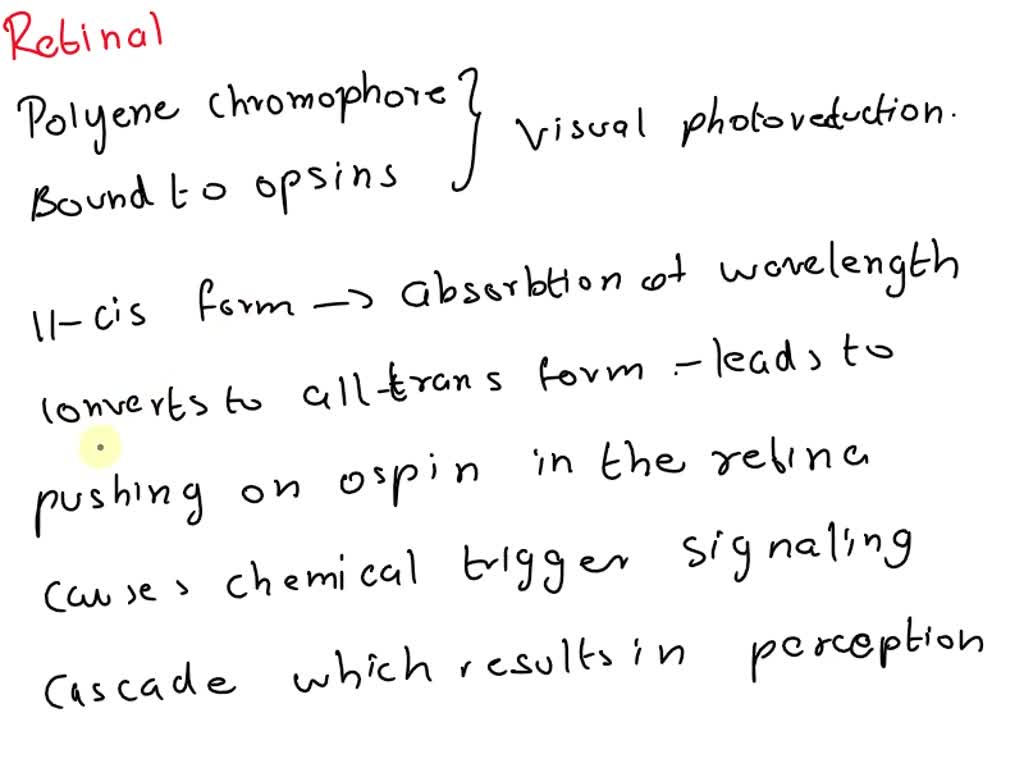 Retinal
Polyene chromophore } visual photoreduction.
Bound to opsins
11-cis form → absorbtion of wavelength
converts to all-trans form - leads to
pushing on ospin in the retina
causes chemical trigger signaling
cascade which results in perception